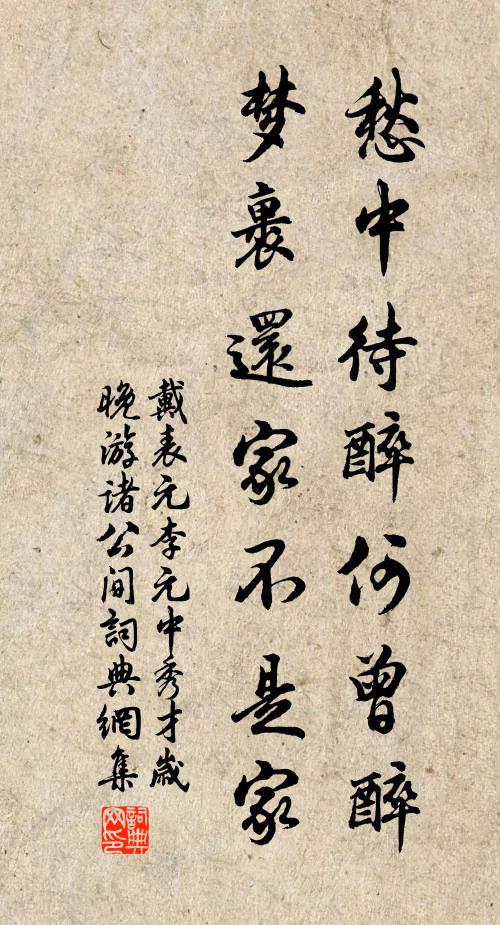 愁中待醉何曾醉
梦裏還家不是家
戴表元李元中秀才歲
晚游诸公间詞典網集
詞典网印